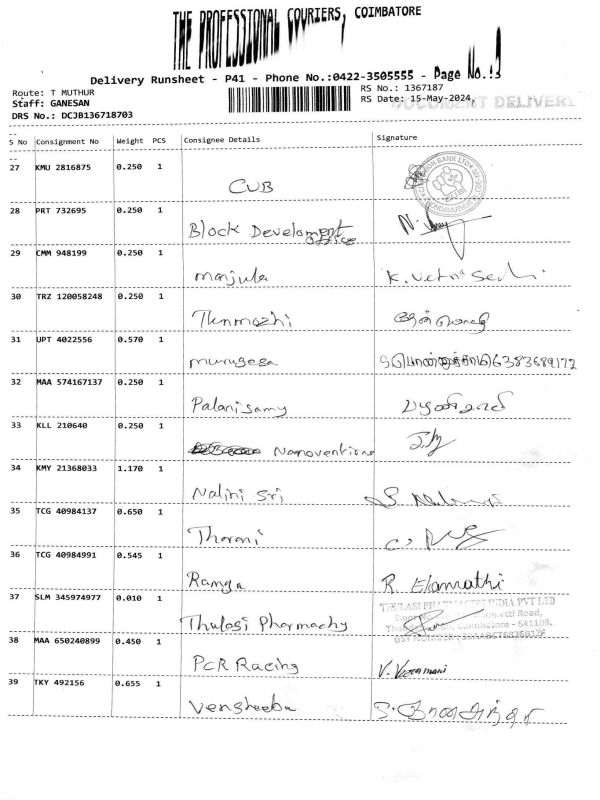 THE PROFESSIONAL COURIERS, COIMBATORE
Delivery Runsheet - P41 - Phone No.:0422-3505555 - Page No.:3
Route: T MUTHUR
RS No.: 1367187
Staff: GANESAN
RS Date: 15-May-2024,
DOCUMENT DELIVERE
DRS No.: DCJB136718703
S No Consignment No Weight PCS Consignee Details Signature
27 KMU 2816875 0.250 1
CUB
28 PRT 732695 0.250 1
Block Development
office
29 CMM 948199 0.250 1
manjula K.
30 TRZ 120058248 0.250 1
Thenmozhi தேன்மொழி
31 UPT 4022556 0.570 1
murugesa 6383689172
32 MAA 574167137 0.250 1
Palanisamy பழனிசாமி
33 KLL 210640 0.250 1
Nanoventions
34 KMY 21368033 1.170 1
Nalini Sri S
35 TCG 40984137 0.650 1
Tharani
36 TCG 40984991 0.545 1
Ramya R. Elamathi
37 SLM 345974977 0.010 1
THULASI PHARMACIES INDIA PVT LTD
Thulasi Pharmachy Coimbatore - 641109.
38 MAA 650240899 0.450 1
PCR Racing V. Veeramani
39 TKY 492156 0.655 1
Vensheeba